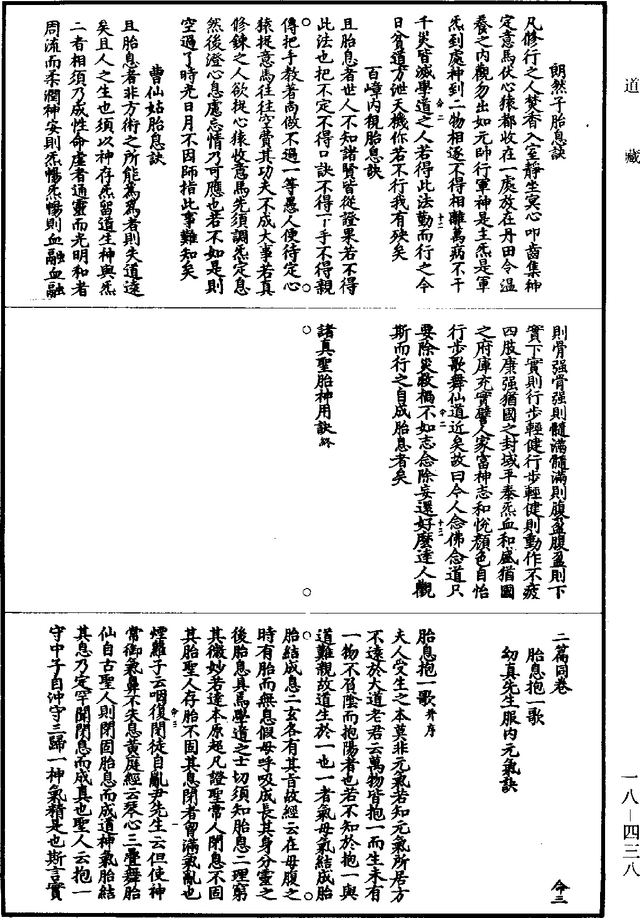 道藏
朗然子胎息訣
凡修行之人焚香入室靜坐冥心叩齒集神
定意馬伏心猿都收在一處放在丹田令溫
養之內觀勿出如元帥行軍神是主炁是軍
炁到處神到二物相逐不得相離萬病不干
千災皆滅學道之人若得此法勤而行之今
日貧道方泄天機你若不行我有殃矣
百嶂內視胎息訣
且胎息者世人不知諸賢皆從證果若不得
此法也把不定不得口訣不得下手不得親
傳把手教著尚做不過一等愚人便待定心
猿捉意馬往往空費其功夫不成大事若真
修鍊之人欲捉心猿收意馬先須調炁定息
然後澄心息慮忘情乃可應也若不如是則
空過了時光日月不因師指此事難知矣
曹仙姑胎息訣
且胎息者非方術之所能為為者則失道遠
矣且人之生也須以神存炁留道生神與炁
二者相須乃成性命虛者通靈而光明和者
周流而柔潤神安則炁暢炁暢則血融血融
命二
十二
則骨強骨強則髓滿髓滿則腹盈腹盈則下
實下實則行步輕健行步輕健則動作不疲
四肢康強猶國之封域平泰炁血和盛猶國
之府庫充實譬人家富神志和悅顏色自怡
行步歌舞仙道近矣故曰今人念佛念道只
要除災救禍不如志念除妄還好麼達人觀
斯而行之自成胎息者矣
命二
十三
諸真聖胎神用訣終
二篇同卷
胎息抱一歌
幼真先生服內元氣訣
胎息抱一歌并序
夫人受生之本莫非元氣若知元氣所居方
不遠於大道老君云萬物皆抱一而生未有
一物不負陰而抱陽者也若不知於抱一與
道難親故道生於一也一者氣母氣結成胎
胎結成息二玄各有其旨故經云在母腹之
時有胎而無息假母呼吸成長其身分靈之
後胎息具焉學道之士切須知胎息二理窮
其微妙若達本原超凡證聖常人閉息不固
其胎聖人存胎不固其息閉者留滿氣亂也
煙蘿子云咽復閉徒自亂尹先生云但使神
常御氣鼻不失息黃庭經云琴心三疊舞胎
仙自古聖人則閉固胎息而成道神氣胎結
其息乃定罕聞閉息而成真也聖人云抱一
守中子自沖守三歸一神氣精是也斯言實
命三
一
一八—四三八
命三